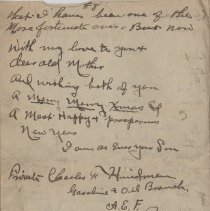 #8
that I have been one of the
More fortunate ones. But now
with my love to you &
dear old Mother
And wishing both of you
A Merry Merry Xmas and
A Most Happy & prosperous
New Year
I am as Ever your Son
Private Charles H
Gasoline & Oil Branch,
A.E.F.